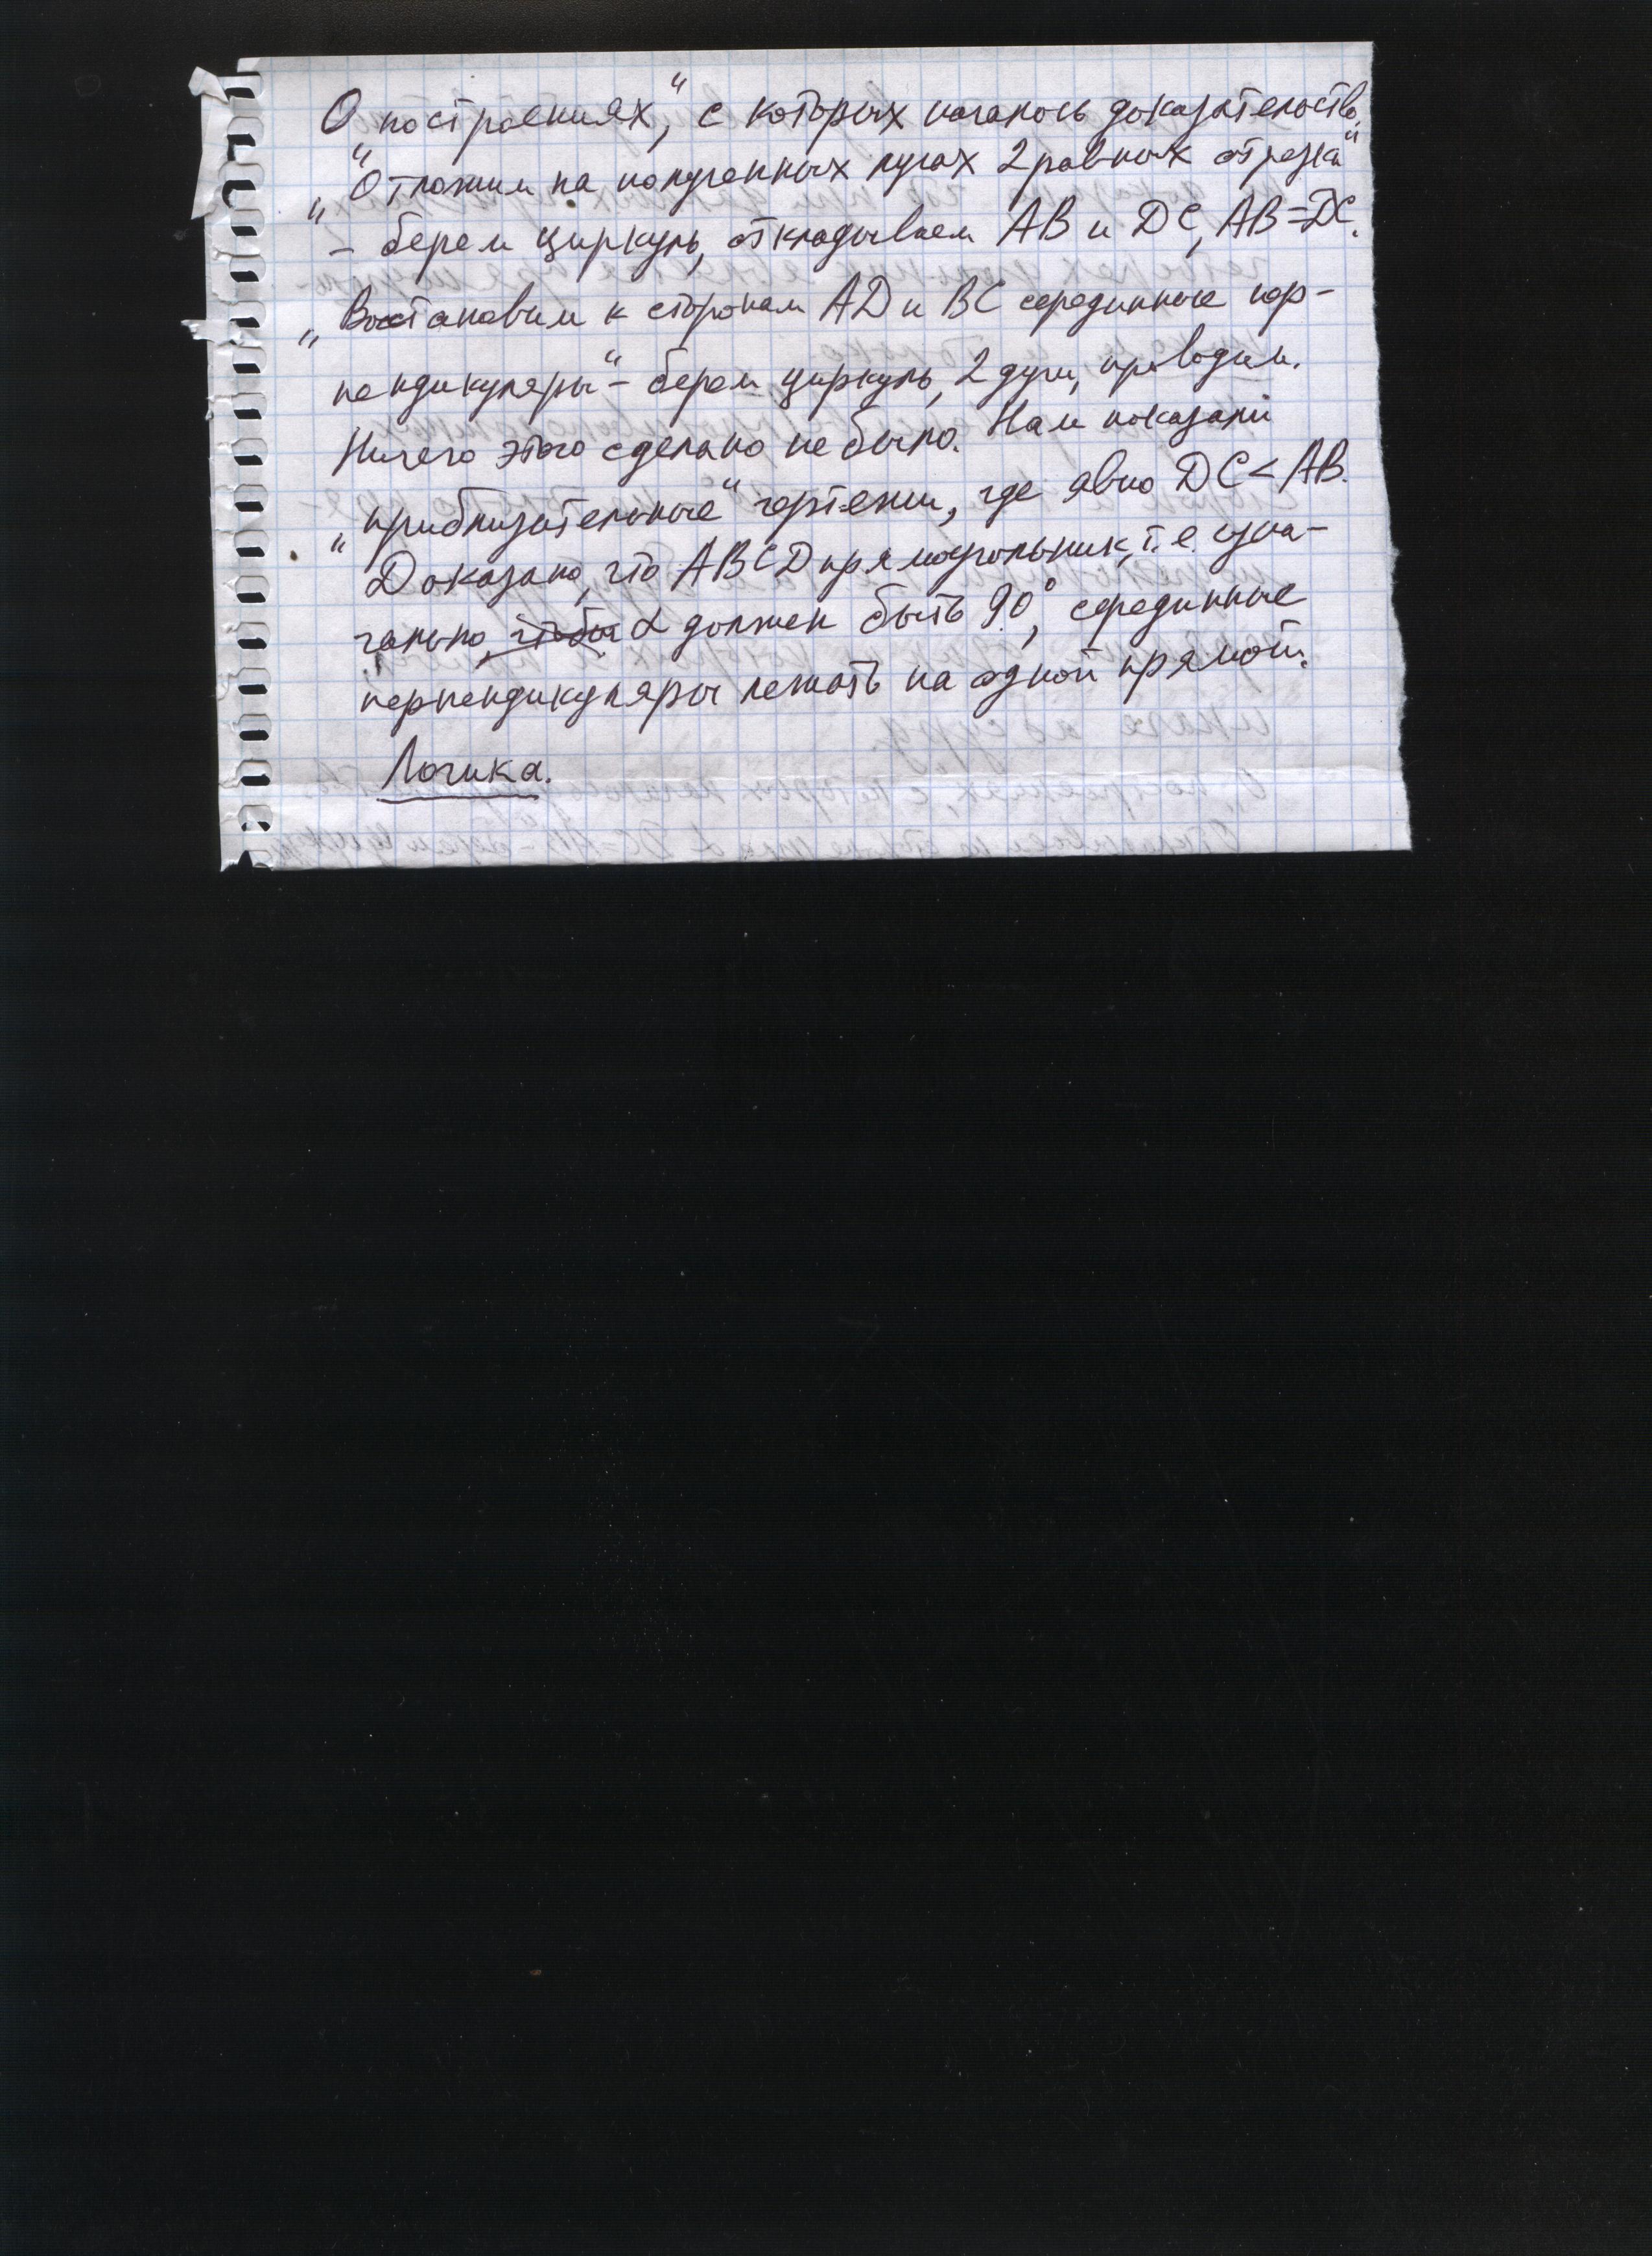 О „построениях“, с которых началось доказательство.
„Отложим на полученных лучах 2 равных отрезка“
– берем циркуль, откладываем AB и DC, AB=DC.
„Восстановим к сторонам AD и BC серединные пер-
пендикуляры“ – берем циркуль, 2 дуги, проводим.
Ничего этого сделано не было. Нам показали
„приблизительные“ чертежи, где явно DC < AB.
Доказано, что ABCD прямоугольник, т.е. изна-
чально, чтобы α должен быть 90°, серединные
перпендикуляры лежать на одной прямой.
Логика.